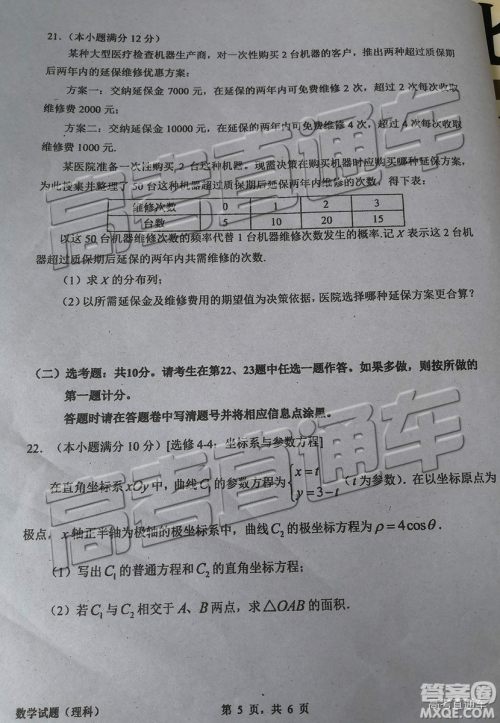 21.（本小题满分 12 分）
某种大型医疗检查机器生产商，对一次性购买 2 台机器的客户，推出两种超过质保期
后两年内的延保维修优惠方案：
方案一：交纳延保金 7000 元，在延保的两年内可免费维修 2 次，超过 2 次每次收取
维修费 2000 元；
方案二：交纳延保金 10000 元，在延保的两年内可免费维修 4 次，超过 4 次每次收取
维修费 1000 元.
某医院准备一次性购买 2 台这种机器。现需决策在购买机器时应购买哪种延保方案，
为此搜集并整理了 50 台这种机器超过质保期后延保两年内维修的次数，得下表：
维修次数 0 1 2 3
台数 5 10 20 15
以这 50 台机器维修次数的频率代替 1 台机器维修次数发生的概率.记 X 表示这 2 台机
器超过质保期后延保的两年内共需维修的次数.
（1）求 X 的分布列；
（2）以所需延保金及维修费用的期望值为决策依据，医院选择哪种延保方案更合算？
（二）选考题：共10分。请考生在第22、23题中任选一题作答。如果多做，则按所做的
第一题计分。
答题时请在答题卷中写清题号并将相应信息点涂黑。
22.（本小题满分 10 分）[选修 4-4：坐标系与参数方程]
在直角坐标系 xOy 中，曲线 C₁ 的参数方程为 { x=t y=3-t （t 为参数）. 在以坐标原点为
极点，x 轴正半轴为极轴的极坐标系中，曲线 C₂ 的极坐标方程为 ρ=4cosθ.
（1）写出 C₁ 的普通方程和 C₂ 的直角坐标方程；
（2）若 C₁ 与 C₂ 相交于 A、B 两点，求 △OAB 的面积.
数学试题（理科）
第 5 页，共 6 页
高考直通车
高考直通车
高考直通车
答案圈
MXQE.COM